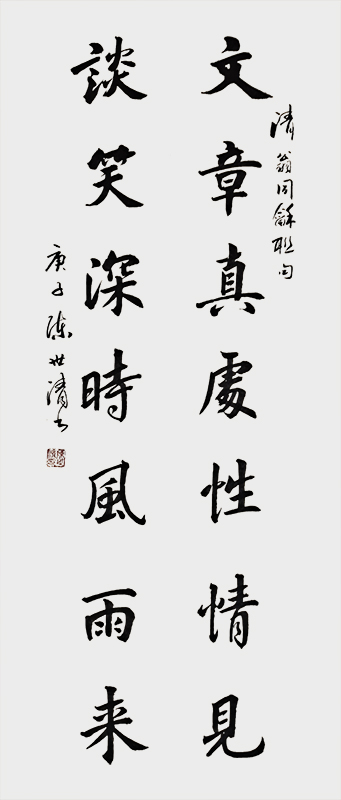 清翁同龢联句
文章真處性情見
談笑深時風雨来
庚子陈世清书